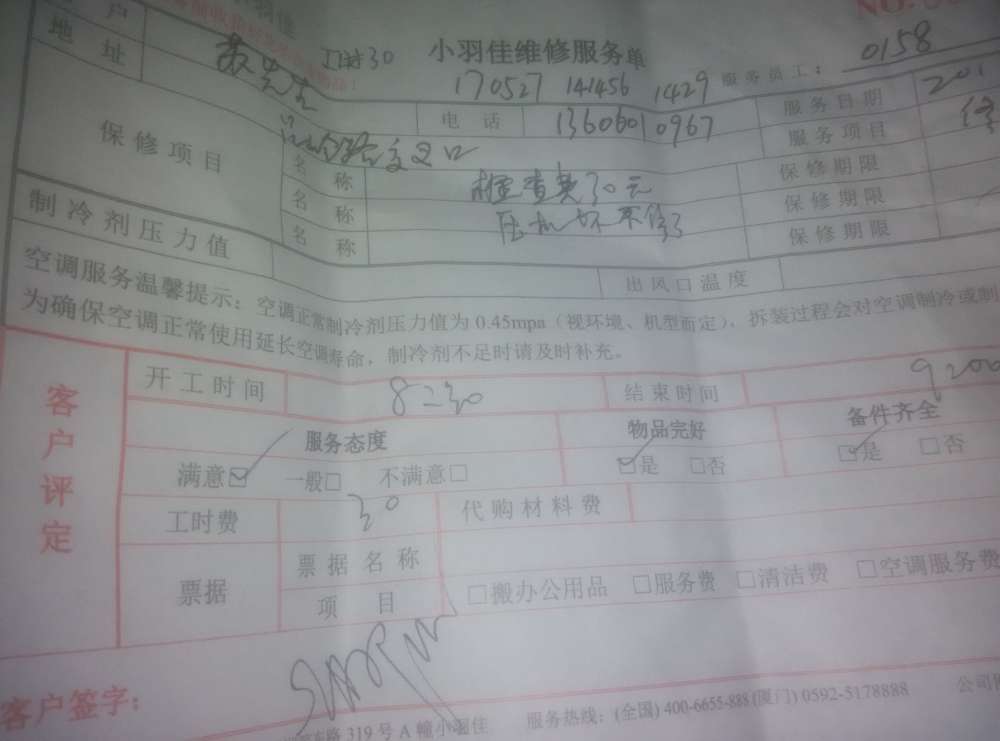 小羽佳
NO:
小羽佳维修服务单
户 工时30 170527 141456 1429 服务员工: 0158
地 址 电 话 13606010967 服务日期 201
路交叉口 服务项目
保修项目 名 称 检查费30元 保修期限
名 称 压机坏不修了 保修期限
名 称 保修期限
制冷剂压力值 出风口温度
空调服务温馨提示:空调正常制冷剂压力值为0.45mpa(视环境、机型而定),拆装过程会对空调制冷或制
为确保空调正常使用延长空调寿命,制冷剂不足时请及时补充。
客户评定
开工时间 8:30 结束时间 9:00
服务态度 物品完好 备件齐全
满意☑ 一般□ 不满意□ ☑是 □否 ☑是 □否
工时费 30 代购材料费
票据 票据名称
项 目 □搬办公用品 □服务费 □清洁费 □空调服务费
客户签字:
东路319号A幢小羽佳 服务热线:(全国)400-6655-888(厦门)0592-5178888 公司